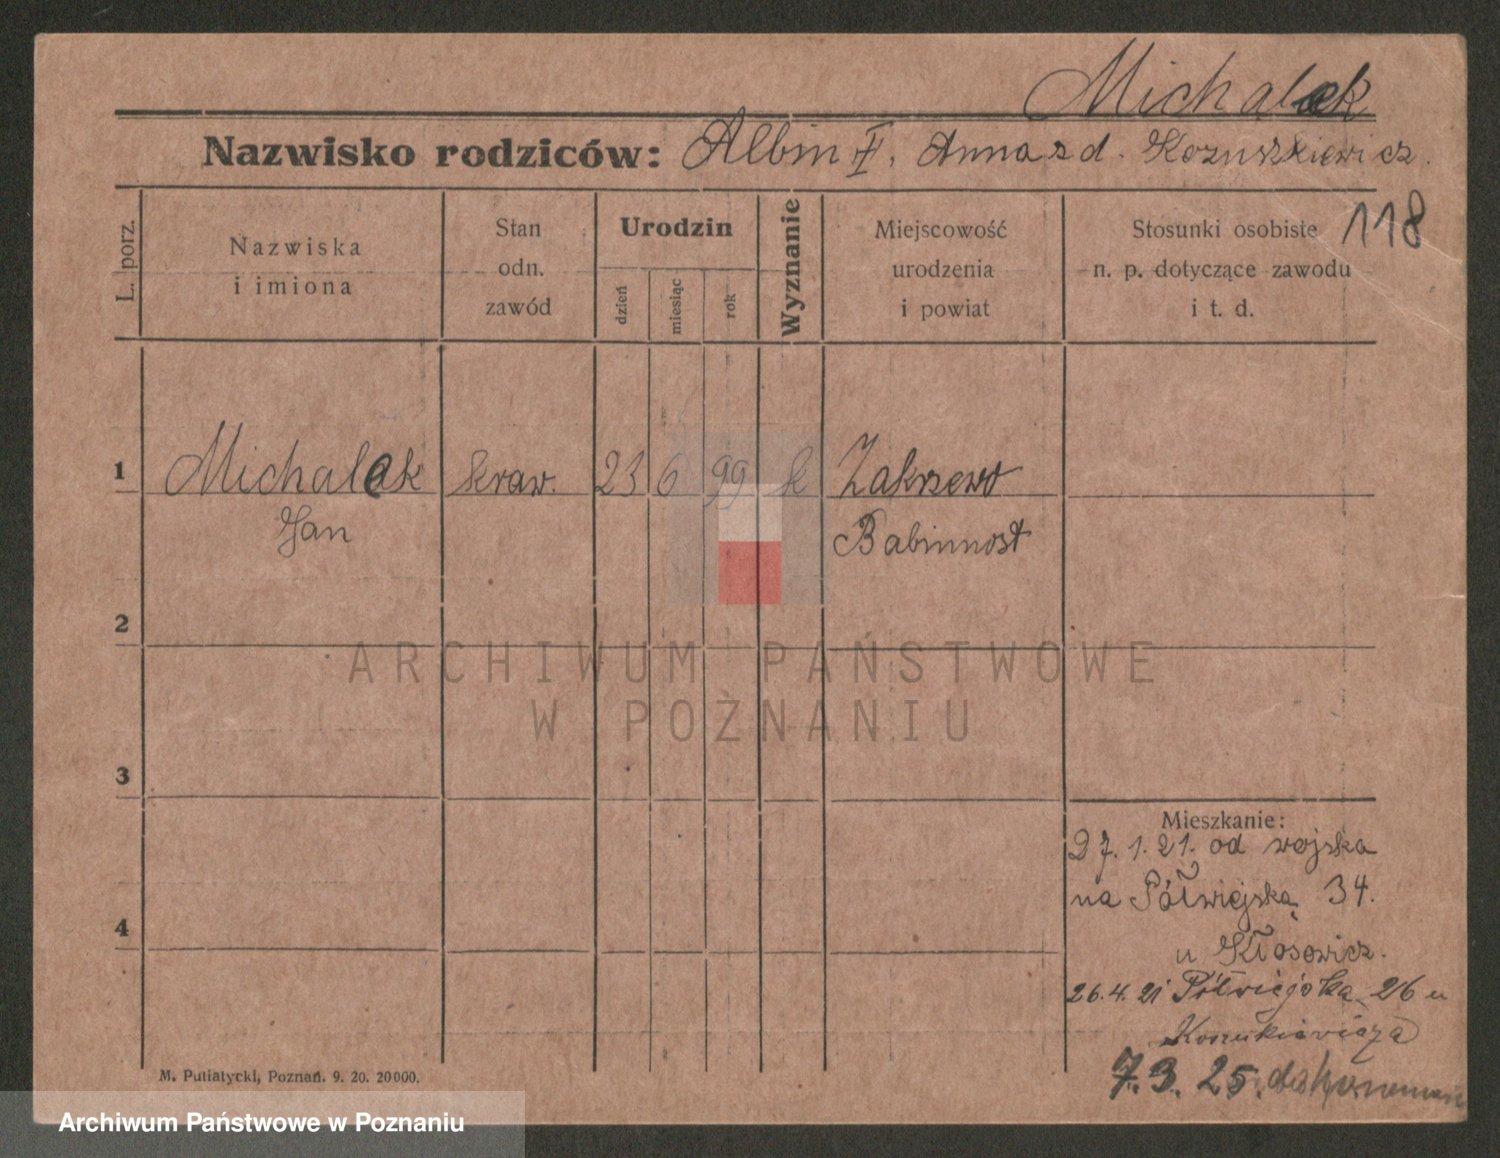 Michalak
Nazwisko rodziców: Albin †, Anna z d. Kozuszkiewicz.
118
L. porz.
Nazwiska
i imiona
Stan
odn.
zawód
Urodzin
dzień
miesiąc
rok
Wyznanie
Miejscowość
urodzenia
i powiat
Stosunki osobiste
n. p. dotyczące zawodu
i t. d.
1
Michalak
kraw.
23
6
99
k
Zakrzewo
Jan
Babimost
2
ARCHIWUM PAŃSTWOWE
W POZNANIU
3
4
Mieszkanie:
27.1.21. od wojska
na Półwiejską 34.
u Kłosowicz.
26.4.21 Półwiejska 26 u
7.3.25. do
M. Putiatycki, Poznań. 9. 20. 20000.
Archiwum Państwowe w Poznaniu